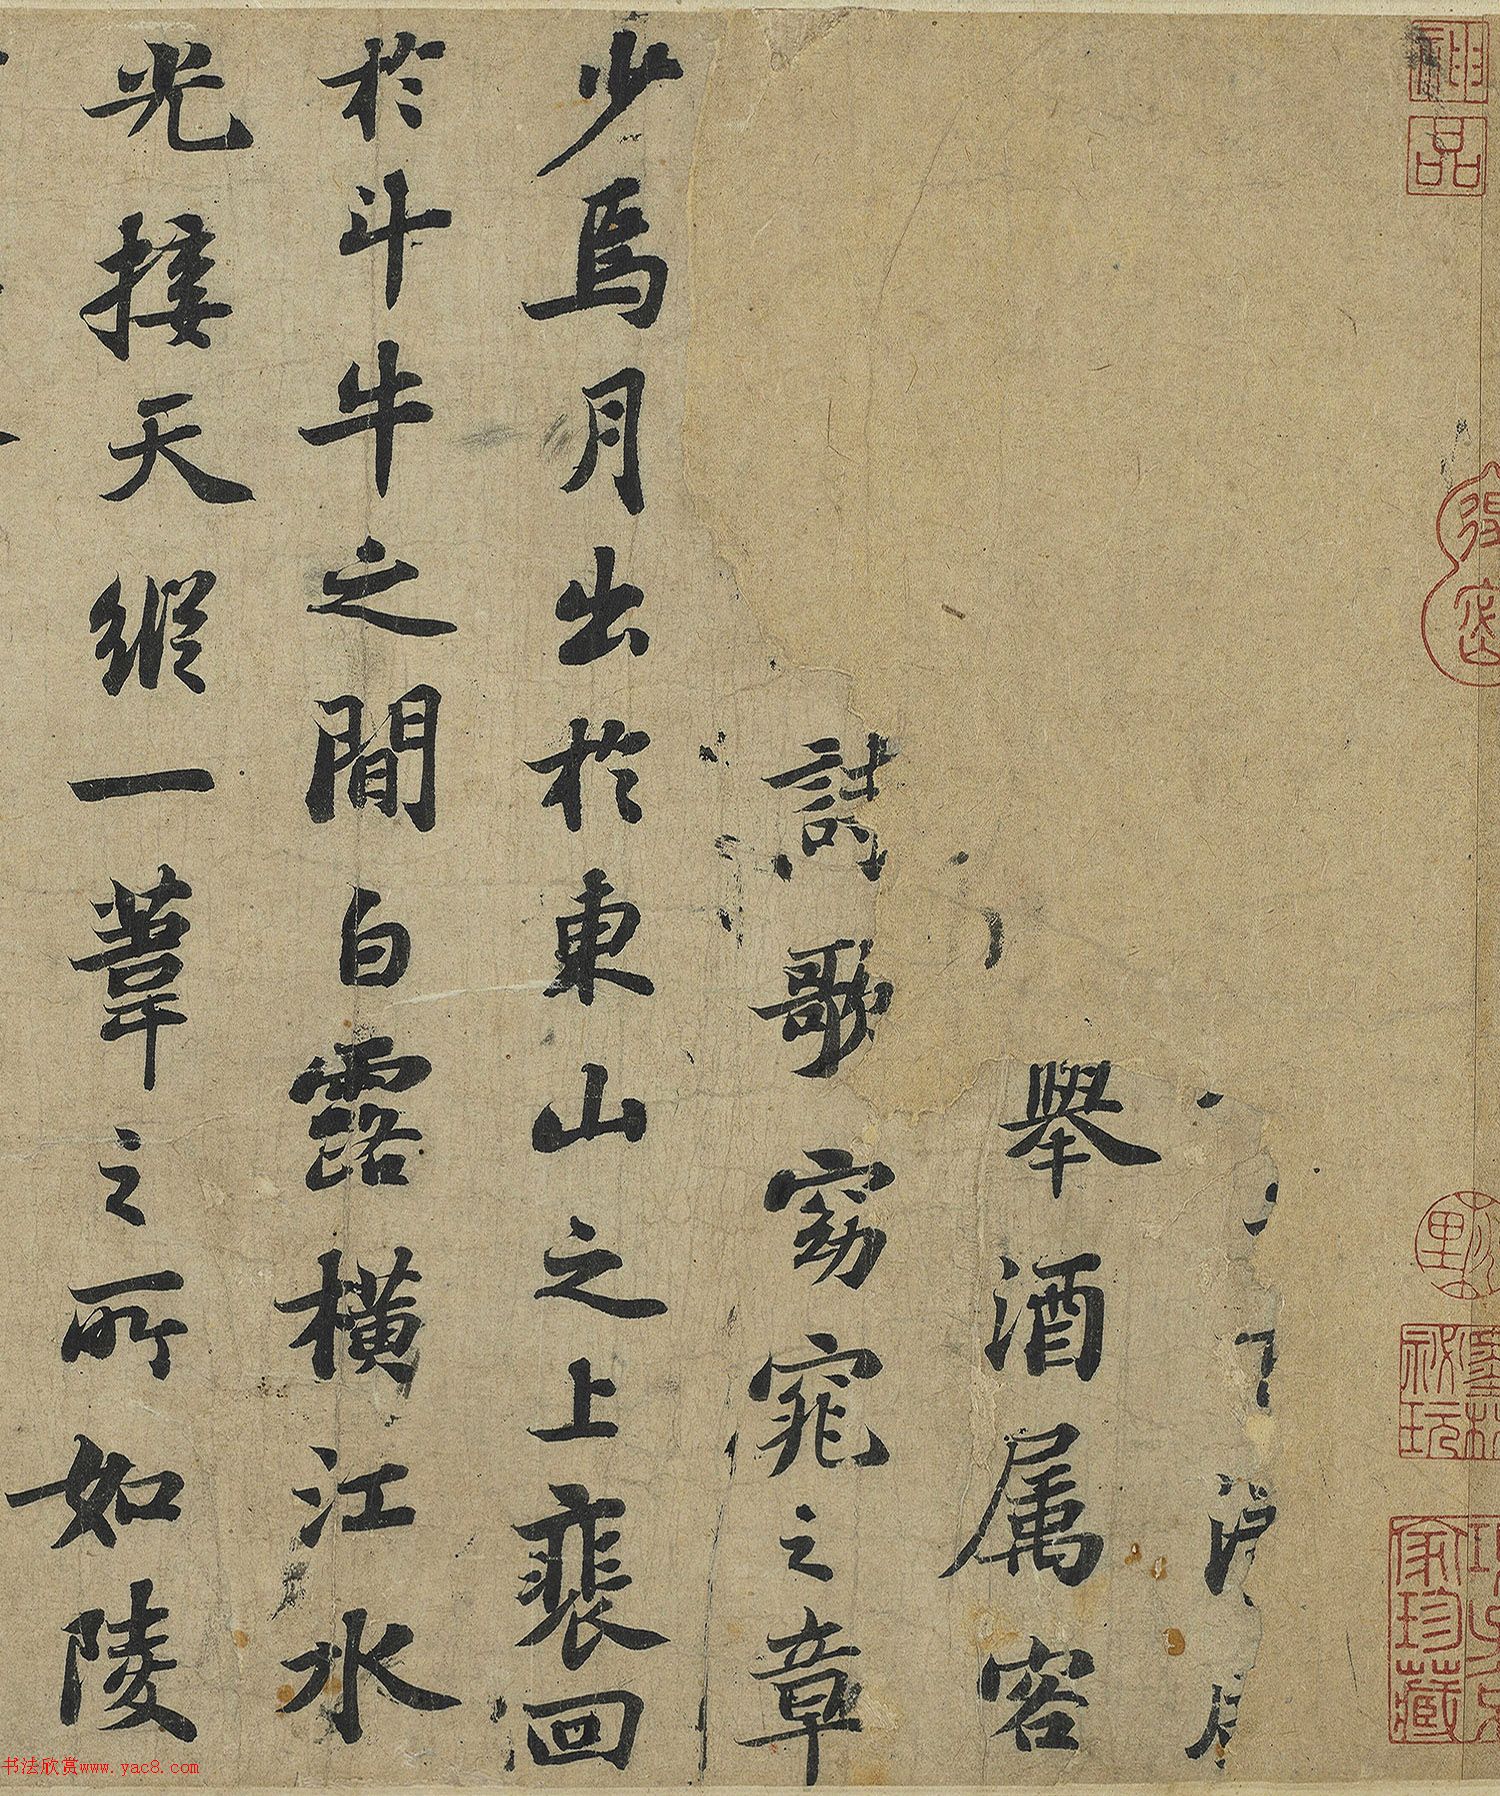 舉酒属客
詩歌窈窕之章
少焉月出於東山之上裵回
於斗牛之間白露横江水
光接天縦一葦之所如陵
神品
家珍藏
书法欣赏www.yac8.com